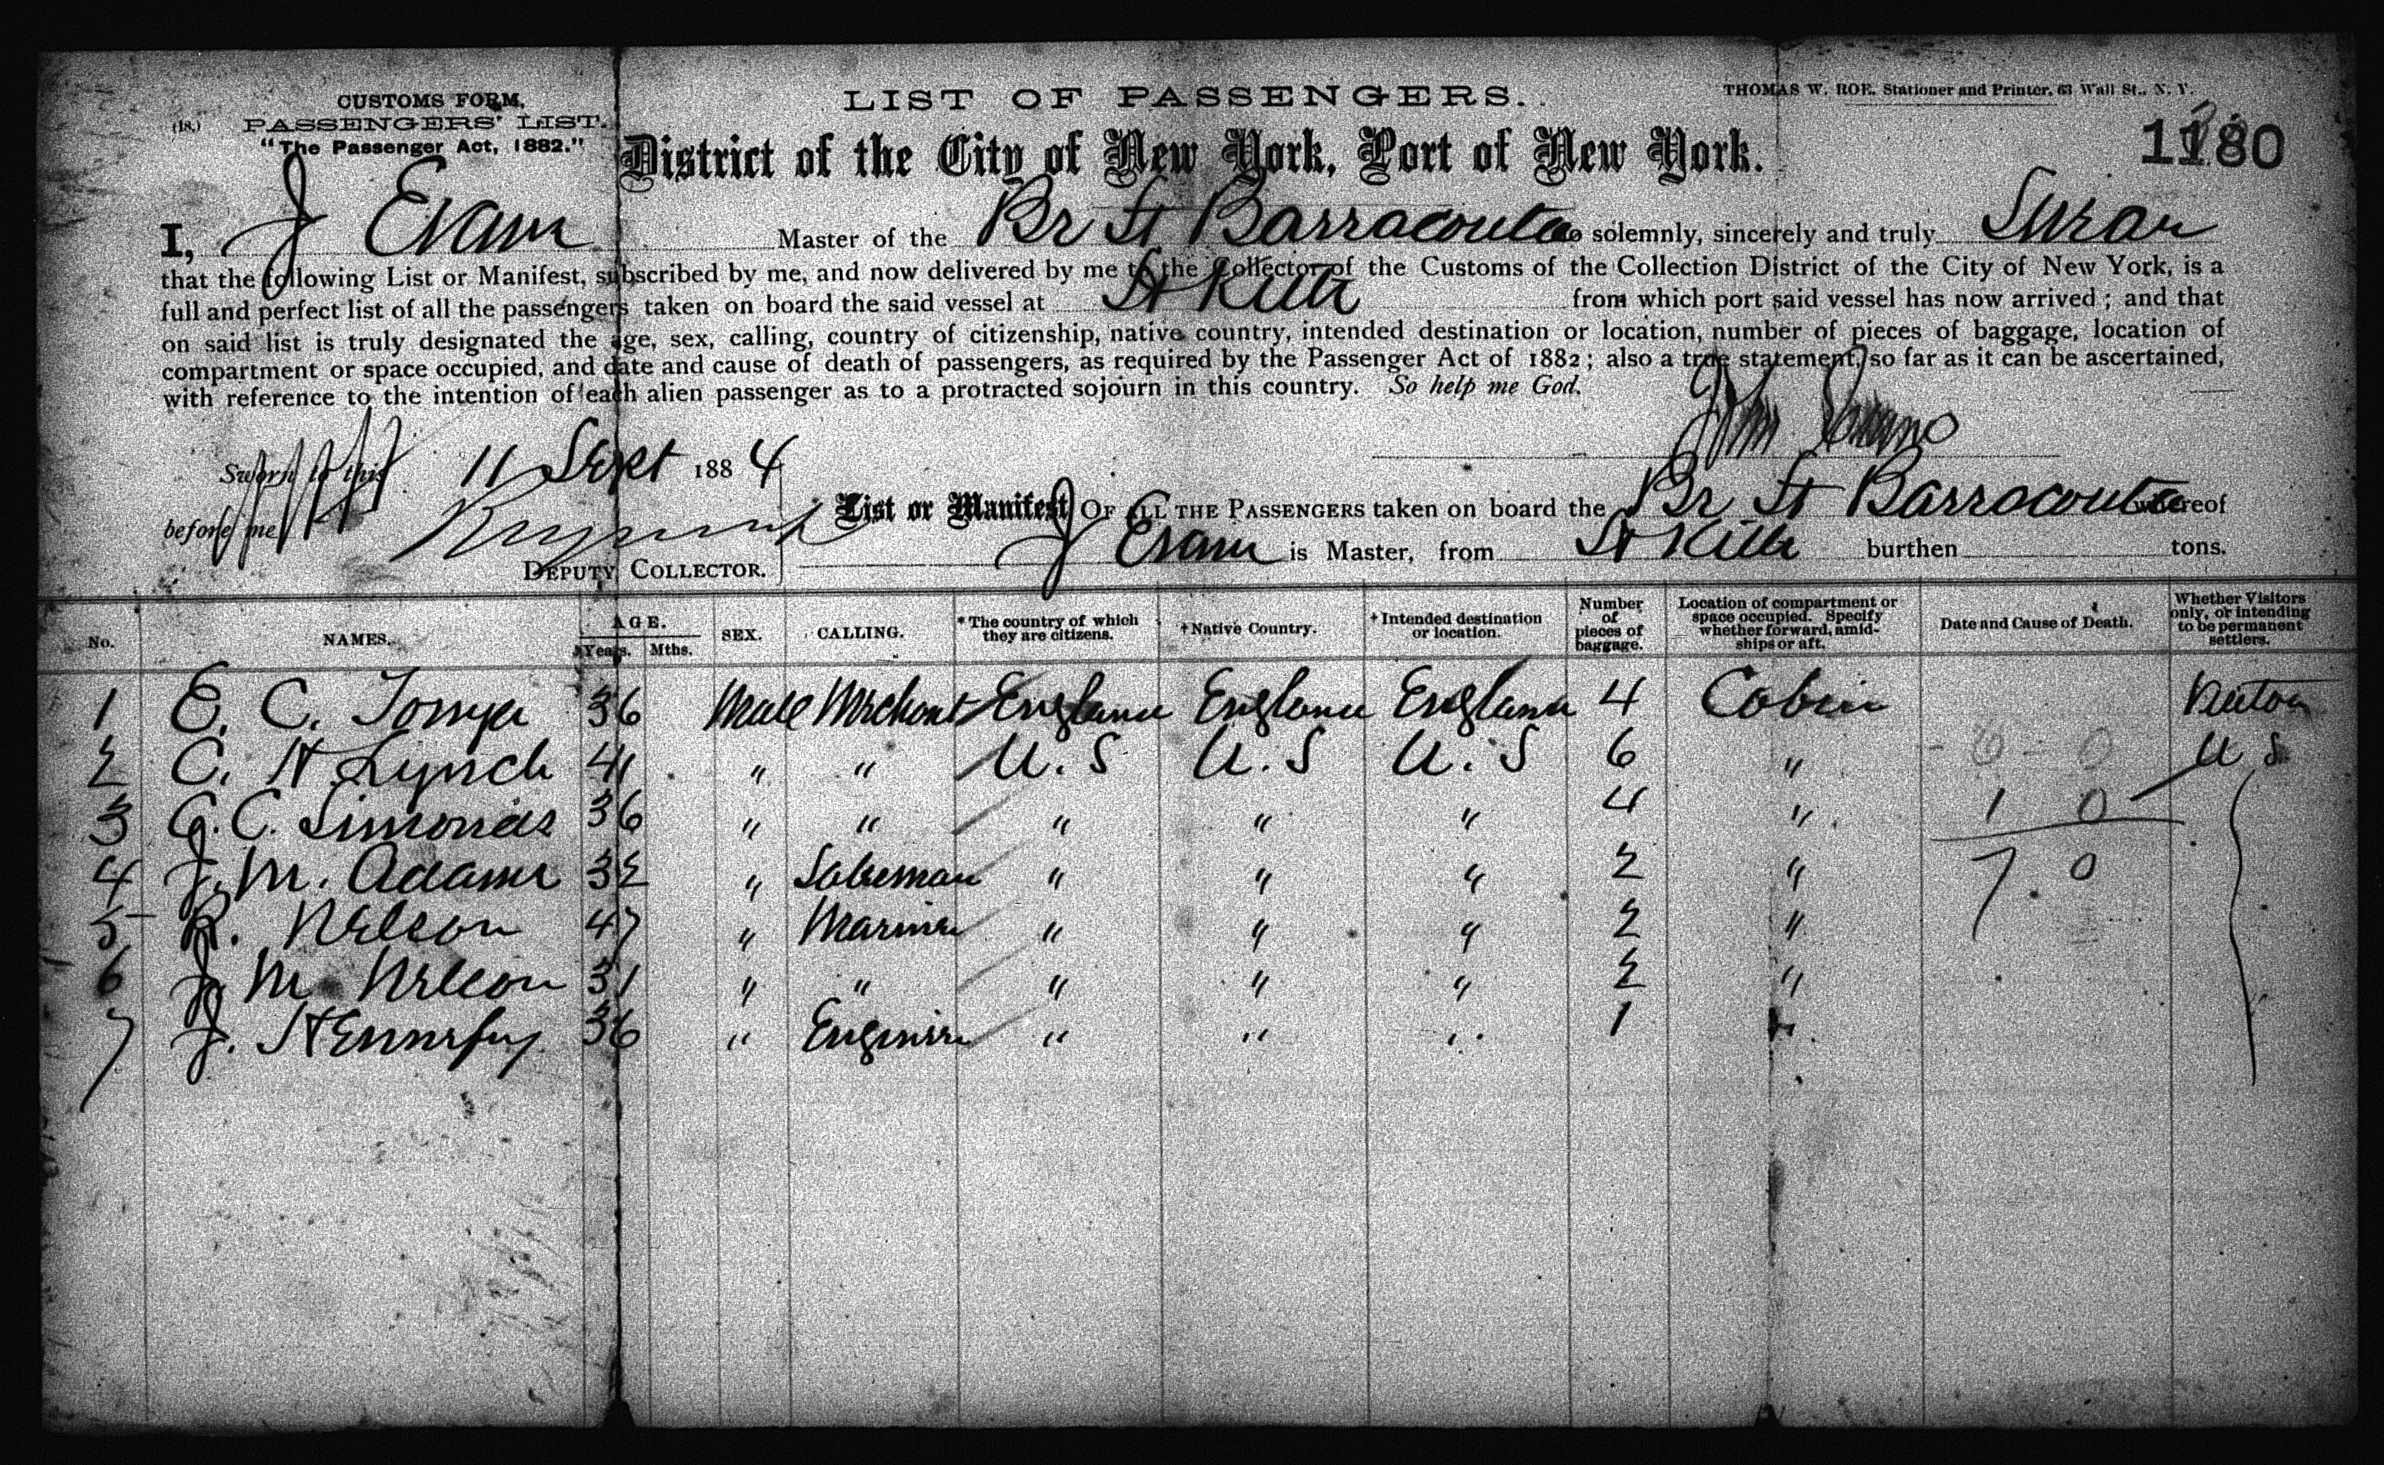 CUSTOMS FORM.
(18.) PASSENGERS' LIST.
"The Passenger Act, 1882."
LIST OF PASSENGERS.
THOMAS W. ROE. Stationer and Printer, 63 Wall St., N. Y.
District of the City of New York, Port of New York.
1180
I, J Evans Master of the Br St Barracouta do solemnly, sincerely and truly Swear
that the following List or Manifest, subscribed by me, and now delivered by me to the Collector of the Customs of the Collection District of the City of New York, is a
full and perfect list of all the passengers taken on board the said vessel at St Kitts from which port said vessel has now arrived ; and that
on said list is truly designated the age, sex, calling, country of citizenship, native country, intended destination or location, number of pieces of baggage, location of
compartment or space occupied, and date and cause of death of passengers, as required by the Passenger Act of 1882 ; also a true statement, so far as it can be ascertained,
with reference to the intention of each alien passenger as to a protracted sojourn in this country. So help me God.
John Evans
Sworn to this 11 Sept 1884
before me
DEPUTY COLLECTOR.
List or Manifest OF ALL THE PASSENGERS taken on board the Br St Barracouta whereof
J Evans is Master, from St Kitts burthen tons.
No. NAMES. AGE. Years. Mths. SEX. CALLING. *The country of which they are citizens. †Native Country. †Intended destination or location. Number of pieces of baggage. Location of compartment or space occupied. Specify whether forward, amidships or aft. Date and Cause of Death. Whether Visitors only, or intending to be permanent settlers.
1 E. C. 36 Male Merchant England England England 4 Cabin
2 C. H Lynch 41 " " U. S U. S U. S 6 " 6 - 0 U S
3 G. C. Simonds 36 " " " " " 4 " 1 0
4 J. M. Adams 32 " Salesman " " " 2 " 7. 0
5 R. Nelson 47 " Mariner " " " 2 "
6 J. M Nelson 31 " " " " " 2 "
7 J. Hennesfy 36 " Engineer " " " 1 "